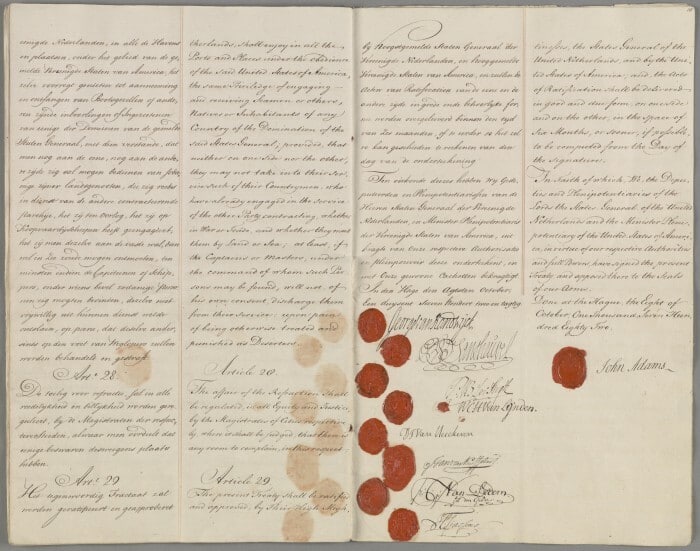 eenigde Nederlanden, in alle de Havens
en plaatsen, onder het geleid van de ge-
melde Vereenigde Staten van America, het
zelve voorregt genieten tot aanneeming
en ontfangen van Bootsgesellen of ande-
ren zijnde inboorlingen of Ingezetenen
van eenige der Domeinen van de gemelde
Staten Generaal, met dien verstande, dat
men nog aan de eene, nog aan de ande-
re zijde zig zal mogen bedienen van
zijner landgenooten, die zig reeds
in dienst van de andere contracteerende
het zij ten oorlog, het zij op
Koopvaardyscheepen heeft geengageert,
het zij men dezelve aan de vaste wal, dan
wel in Zee zoude mogen ontmoeten, ten
minsten indien de Capiteinen of Schip-
pers, onder wiens bevel zodanige Perso-
nen zig mogten bevinden, dezelve niet
vrijwillig uit hunnen dienst wilde
ontslaan, op pene, dat dezelve ander-
sints op den voet van Wegloopers zullen
werden behandelt en gestraft.
Art.l 28
De toeleg voor refractie, sal in alle
redelijkheid en billijkheid worden gere-
guleert, by de Magistraten der
Steden, alwaar men oordeelt dat
eenige beswaren dienwegens plaats
hebben.
Art.l 29
Het tegenwoordig Tractaat zal
worden geratificeert en geapprobeert
therlands, shall enjoy in all the
Ports and Places under the obedience
of the said United States of America,
the same Privilege of engaging
and receiving Seamen or others,
Natives or Inhabitants of any
Country of the Domination of the
said States General; provided, that
neither on one Side nor the other,
they may not take into their Ser-
vice such of their Countrymen, who
have already engaged in the Service
of the other Party contracting, whether
in War or Trade, and whether they meet
them by Land or Sea; at least, if
the Captains or Masters, under
the command of whom such Per-
sons may be found, will not of
his own consent, discharge them
from their Service; upon pain
of being otherwise treated and
punished as Deserters.
Article 28
The affair of the Refraction shall
be regulated, in all Equity and Justice,
by the Magistrates of Cities respective-
ly, where it shall be judged, that there is
any room to complain, in this respect.
Article 29
The present Treaty shall be ratified
and approved, by their High Migh-
by Hoogstgemelde Staten Generaal der
Vereenigde Nederlanden, en hooggemelde
Vereenigde Staten van America, en zullen de
Acten van Ratificatien van de eene en de
andere zijde in goede en de behoorlyke for-
me worden overgelevert binnen den tyd
van ses maanden of te eerder is het sal
kan geschieden te rekenen van den
dag van de onderteekening.
Ten oirkonde deeses hebben Wy Gede-
puteerden en Plenipotentiarissen van de
Heeren Staten Generaal der Vereenigde
Nederlanden, en Minister Plenipotentiaris
der Vereenigde Staten van America, uit
kragte van Onse respective Authorisatie
en Pleinpouvoir deese onderteekent, en
met Onse gewone Cachetten bekragtigt
In den Hage den Agtsten October,
Een duysent Seven Hondert twee en tagtig.
George van Randwijck
W: H: van Lynden.
D: J: van Heeckeren
tinesses, the States General of the
United Netherlands, and by the Uni-
ted States of America; and the Acts
of Ratification shall be delivered
in good and due form, on one side
and on the other, in the Space of
Six Months, or sooner, if possible,
to be computed from the Day of
the Signature.
In Faith of which, We, the Depu-
ties and Plenipotentiaries of the
Lords the States General of the United
Netherlands and the Minister Pleni-
potentiary of the United States of Ameri-
ca, in virtue of our respective Authorities
and full Powers, have signed the present
Treaty, and apposed thereto the Seals
of our Arms.
Done at the Hague, the Eight of
October, One Thousand Seven Hun-
dred Eighty Two.
John Adams